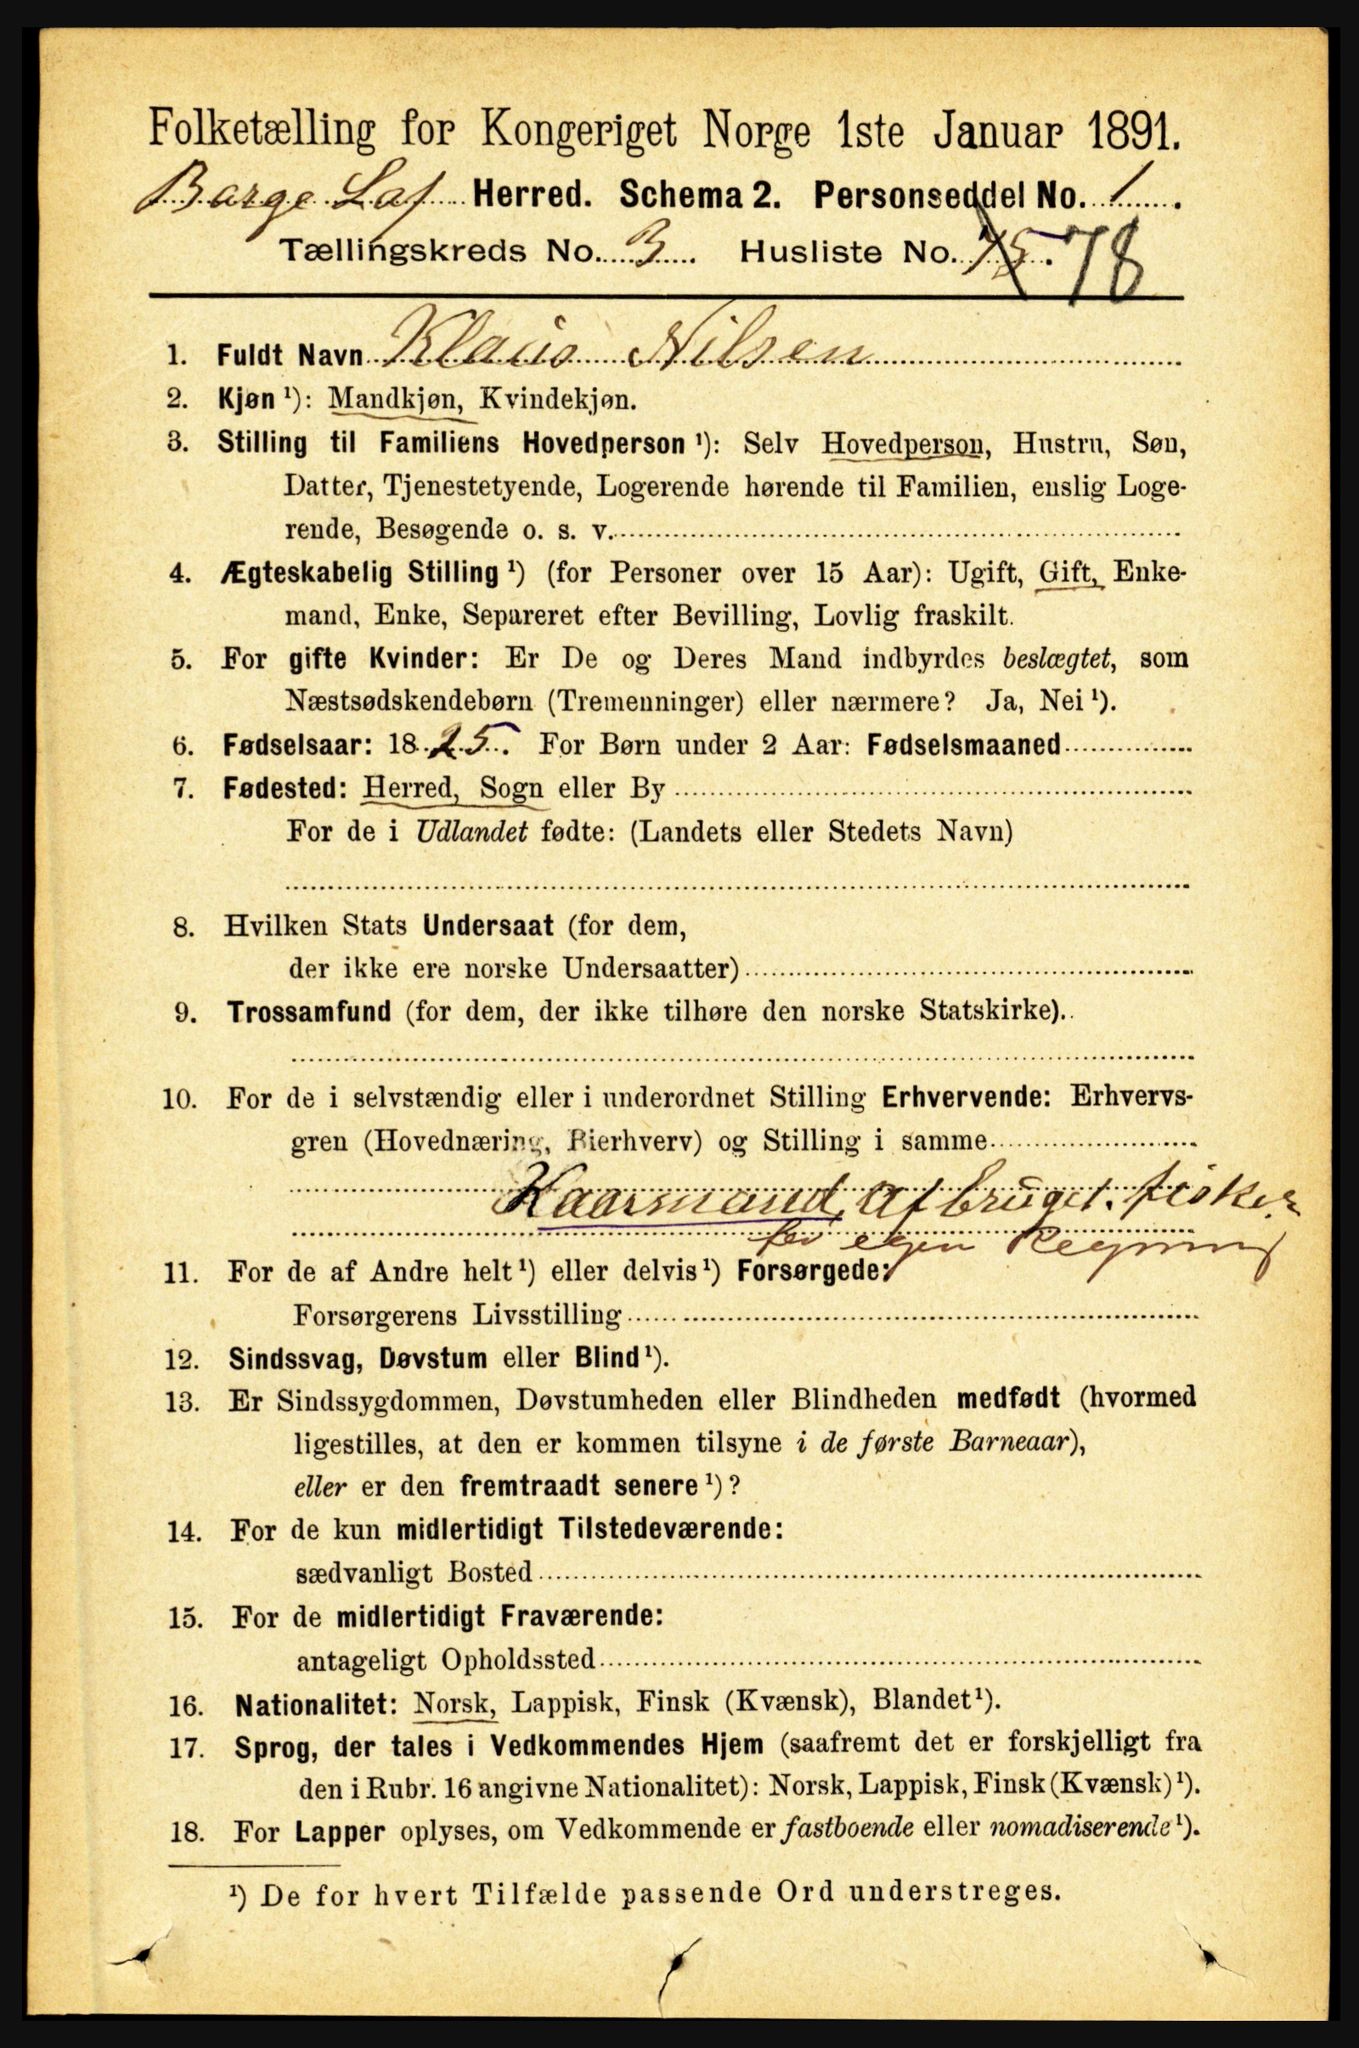 Folketælling for Kongeriget Norge 1ste Januar 1891.
Barge Laf Herred. Schema 2. Personseddel No. 1.
Tællingskreds No. 3. Husliste No. 75. 78
1. Fuldt Navn Klaus Nilsen
2. Kjøn ¹): Mandkjøn, Kvindekjøn.
3. Stilling til Familiens Hovedperson ¹): Selv Hovedperson, Hustru, Søn,
Datter, Tjenestetyende, Logerende hørende til Familien, enslig Loge-
rende, Besøgende o. s. v.
4. Ægteskabelig Stilling ¹) (for Personer over 15 Aar): Ugift, Gift, Enke-
mand, Enke, Separeret efter Bevilling, Lovlig fraskilt.
5. For gifte Kvinder: Er De og Deres Mand indbyrdes beslægtet, som
Næstsødskendebørn (Tremenninger) eller nærmere? Ja, Nei ¹).
6. Fødselsaar: 1825. For Børn under 2 Aar: Fødselsmaaned
7. Fødested: Herred, Sogn eller By
For de i Udlandet fødte: (Landets eller Stedets Navn)
8. Hvilken Stats Undersaat (for dem,
der ikke ere norske Undersaatter)
9. Trossamfund (for dem, der ikke tilhøre den norske Statskirke).
10. For de i selvstændig eller i underordnet Stilling Erhvervende: Erhvervs-
gren (Hovednæring, Bierhverv) og Stilling i samme
Kaarmand, af bruget. fisker
for egen Regning
11. For de af Andre helt ¹) eller delvis ¹) Forsørgede:
Forsørgerens Livsstilling
12. Sindssvag, Døvstum eller Blind ¹).
13. Er Sindssygdommen, Døvstumheden eller Blindheden medfødt (hvormed
ligestilles, at den er kommen tilsyne i de første Barneaar),
eller er den fremtraadt senere ¹)?
14. For de kun midlertidigt Tilstedeværende:
sædvanligt Bosted
15. For de midlertidigt Fraværende:
antageligt Opholdssted
16. Nationalitet: Norsk, Lappisk, Finsk (Kvænsk), Blandet ¹).
17. Sprog, der tales i Vedkommendes Hjem (saafremt det er forskjelligt fra
den i Rubr. 16 angivne Nationalitet): Norsk, Lappisk, Finsk (Kvænsk) ¹).
18. For Lapper oplyses, om Vedkommende er fastboende eller nomadiserende ¹).
¹) De for hvert Tilfælde passende Ord understreges.